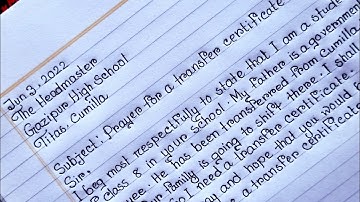 Jun 3, 2022
The Headmaster
Gazipur High School
Titas, Cumilla
Subject: Prayer for a transfer certificate
Sir,
I beg most respectfully to state that I am a stude
class 8 in your school. My father is a government
yee. He has been transferred from Cumilla
r family is going to shift there. I sh
So I need a transfer certificate
ay and hope that you would
e a transfer certificat